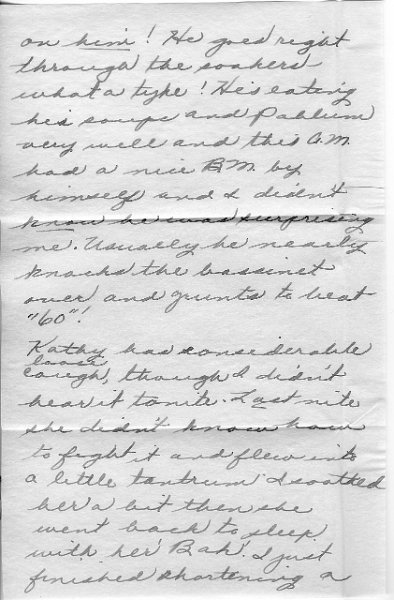 on him! He goes right
through the soakers
what a tyke! He's eating
his soups and Pablum
very well and this A.M.
had a nice B.M. by
himself and I didn't
know he was surprising
me. Usually he nearly
knocks the bassinet
over and grunts to beat
"60"!
Kathy has considerable
loose
cough, though I didn't
hear it tonite. Last nite
she didn't know how
to fight it and flew into
a little tantrum I soothed
her a bit then she
went back to sleep
with her 'Bah'. I just
finished shortening a